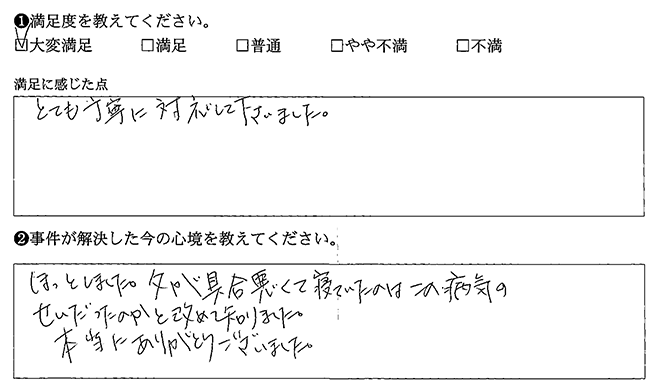 ❶満足度を教えてください。
☑大変満足 □満足 □普通 □やや不満 □不満
満足に感じた点
とても丁寧に対応して下さいました。
❷事件が解決した今の心境を教えてください。
ほっとしました。父が具合悪くて寝ていたのはこの病気の
せいだったのかと改めて知りました。
本当にありがとうございました。